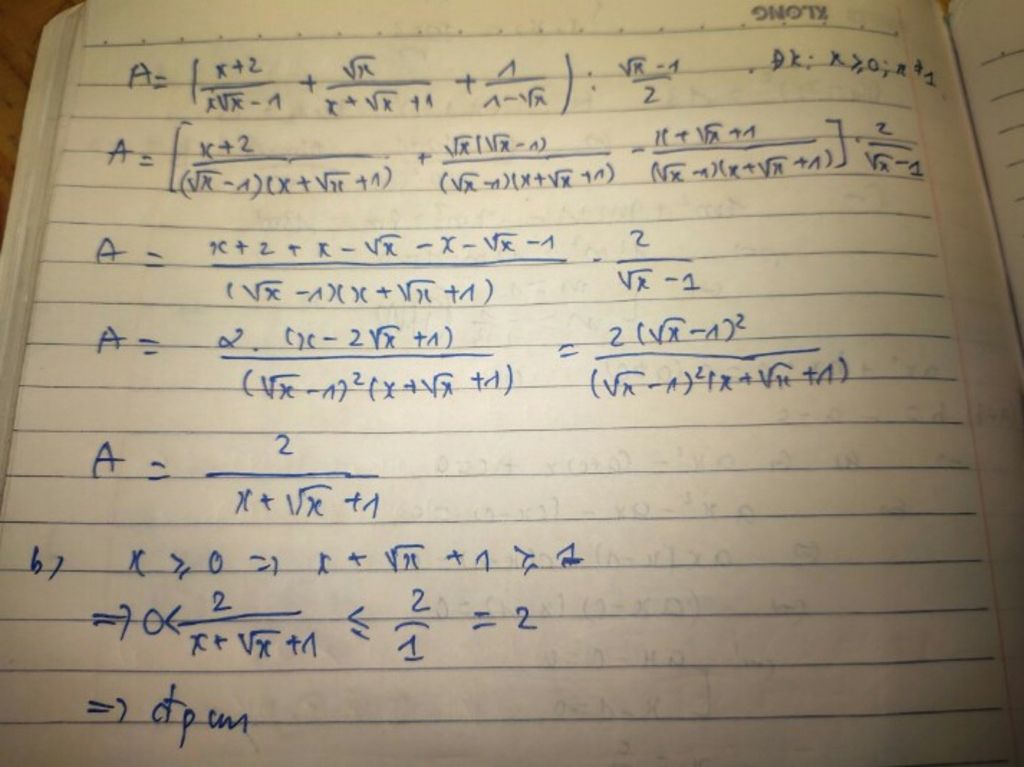 KLONG
A = ( x+2 / x√x - 1 + √x / x + √x + 1 + 1 / 1 - √x ) : √x - 1 / 2 . Đk: x ≥ 0; x ≠ 1
A = [ x+2 / (√x - 1)(x + √x + 1) + √x(√x - 1) / (√x - 1)(x + √x + 1) - x + √x + 1 / (√x - 1)(x + √x + 1) ] . 2 / √x - 1
A = x + 2 + x - √x - x - √x - 1 / (√x - 1)(x + √x + 1) . 2 / √x - 1
A = 2. (x - 2√x + 1) / (√x - 1)²(x + √x + 1) = 2(√x - 1)² / (√x - 1)²(x + √x + 1)
A = 2 / x + √x + 1
b) x ≥ 0 => x + √x + 1 ≥ 1
=> 0 < 2 / x + √x + 1 ≤ 2 / 1 = 2
=> đpcm